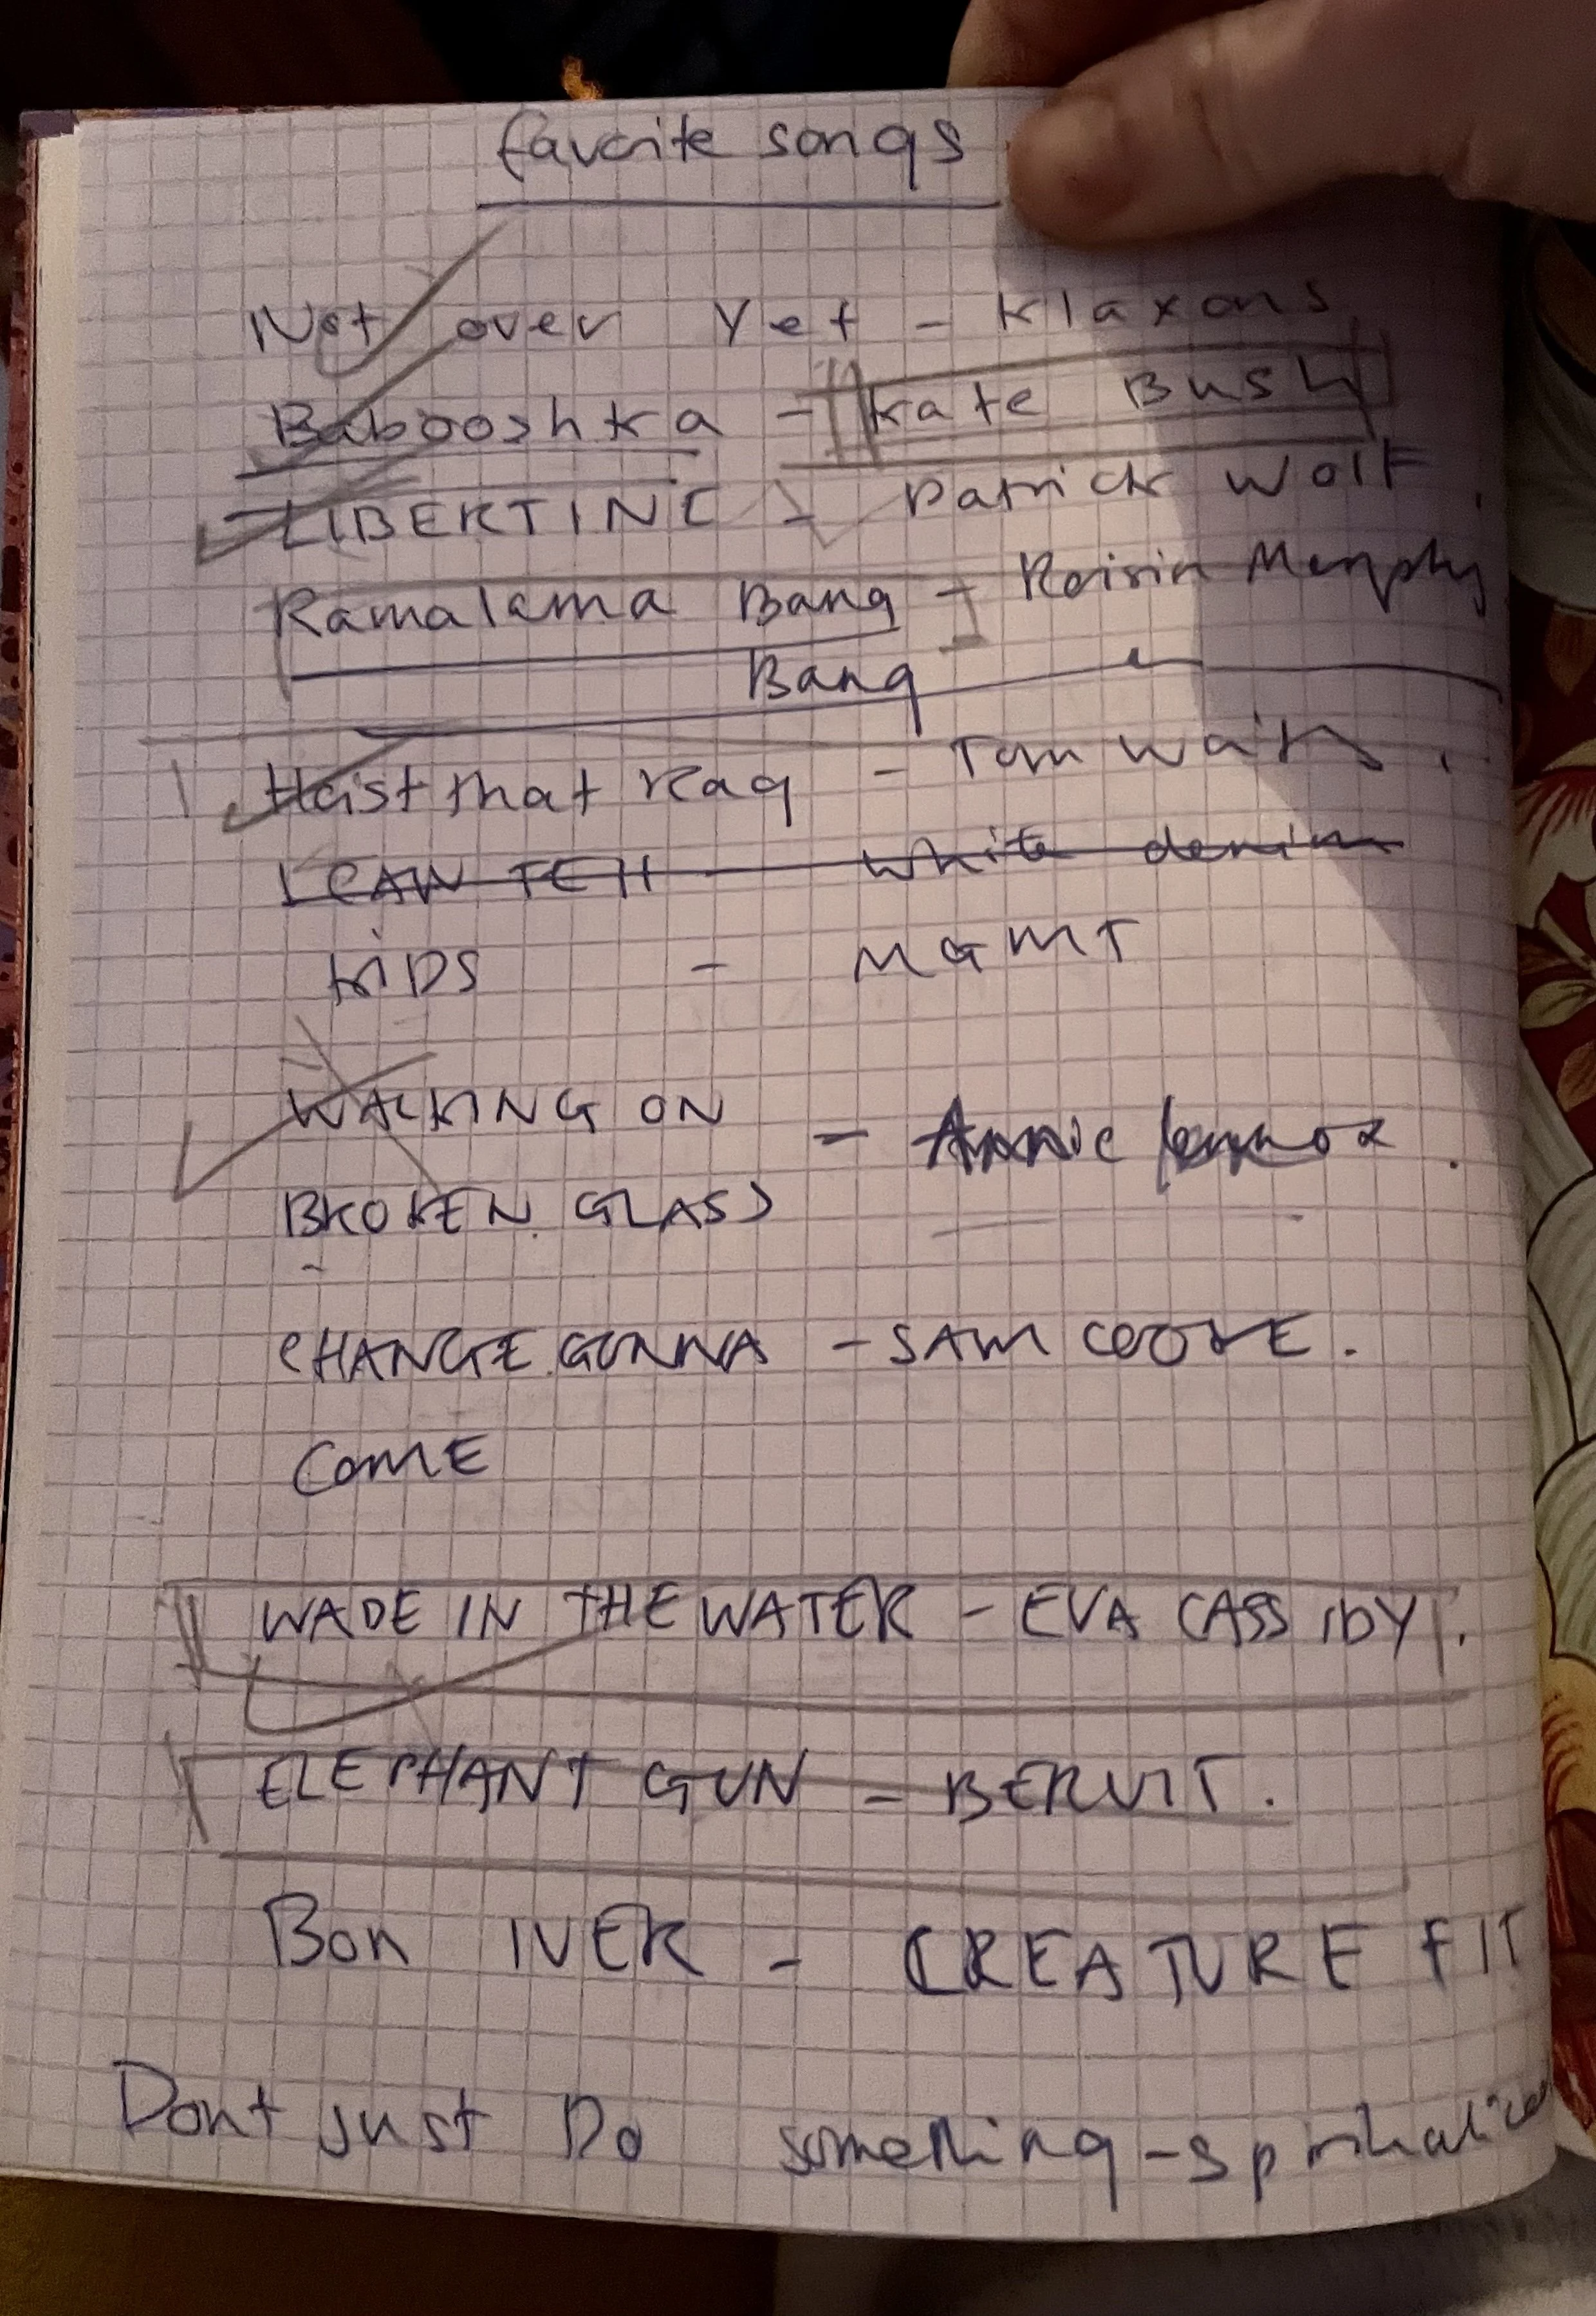 favorite songs
Not over Yet - Klaxons
Babooshka - Kate Bush
LIBERTINE - Patrick Wolf
Ramalama Bang - Roisin Murphy
Bang
Hoist that Rag - Tom Waits.
white denim
KIDS - MGMT
WALKING ON
- Annie lennox.
BROKEN GLASS
CHANGE GONNA - SAM COOKE.
COME
WADE IN THE WATER - EVA CASSIDY.
ELEPHANT GUN - BERUIT.
Bon IVER - CREATURE FIT
Dont just Do something - spiritualized